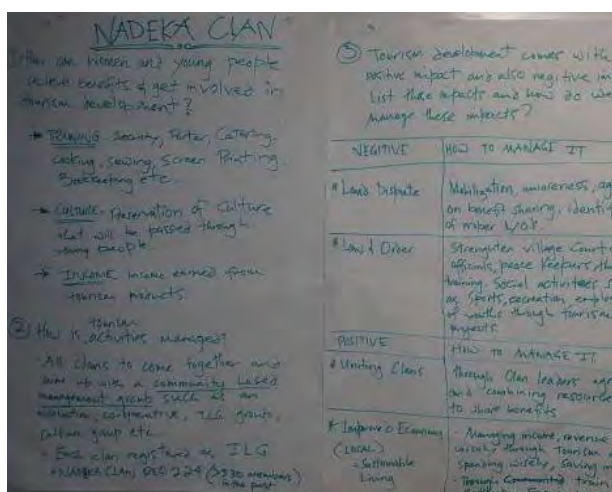 NADEKA CLAN
How can women and young people
recieve benefits & get involved in
tourism development?
* TRAINING - Security, Porter, Catering,
cooking, sewing, Screen Printing
Bookkeeping etc.
* CULTURE - Preservation of Culture
that will be passed through
young people.
* INCOME - Income earned from
tourism products.
② How is tourism activities managed?
- All clans to come together and
come up with a community based
management group such as an
association, cooperative, ILG groups,
culture group etc
- Each clan registered as ILG
③ Tourism development comes with
positive impact and also negitive
List these impacts and how do we
manage these impacts?
NEGITIVE
HOW TO MANAGE IT
* Land Dispute
Mobilization, awareness,
on benefit sharing,
of
* Law & Order
Strenghten village Court
officials, peace keepers,
training. Social activitees
as Sports, recreation,
of youths through tourism
projects.
POSITIVE
HOW TO MANAGE IT
* Uniting Clans
through Clan leaders
and combining resource
to share benefits
* Improve Economy
(LOCAL)
- Sustainable
Living
- Managing income, revenue
wisely through Tourism
spending wisely, saving